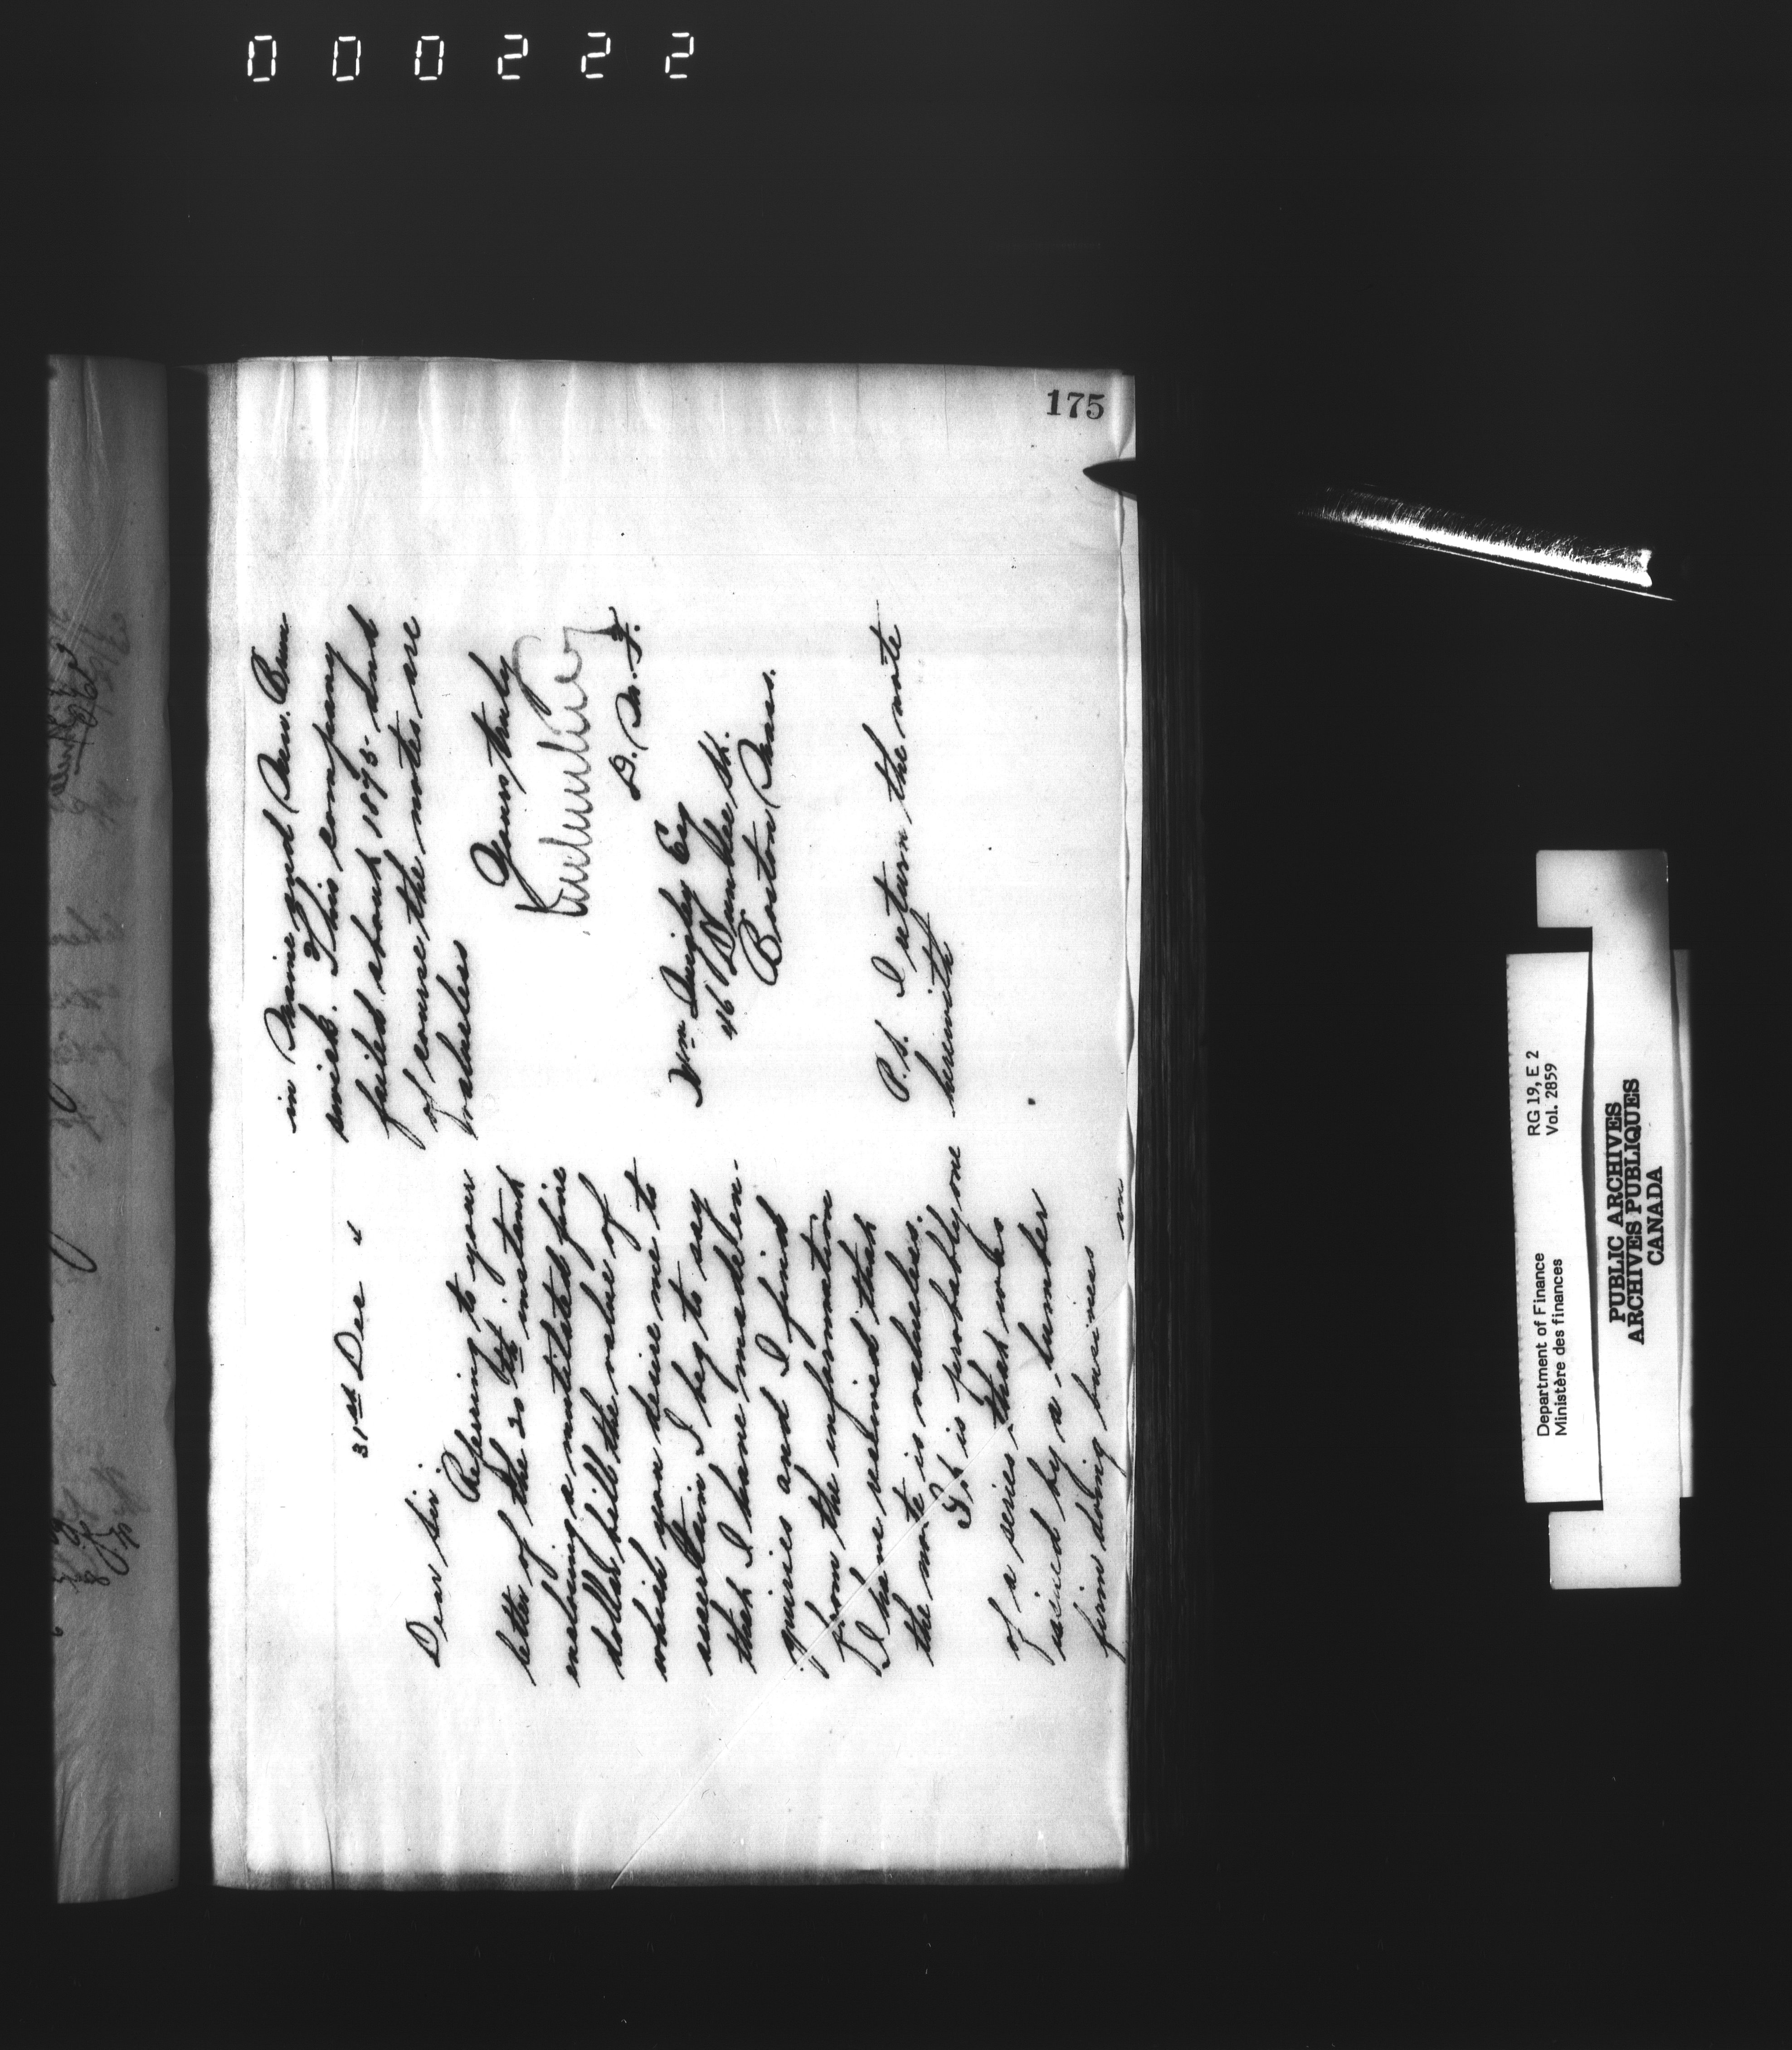 000222
175
31st Dec 4
Dear Sir,
Referring to your
letter of the 20th instant
enclosing a mutilated five
dollar bill the value of
which you desire me to
ascertain I beg to say
that I have made en-
quiries and I find
from the information
I have received that
the note is valueless.
It is probably one
of a series that was
issued by a lumber
firm doing business in
in Maine and New Brun-
swick. This company
failed about 1875 and
of course the notes are
valueless
Yours truly
D. M. F.
Wm Quigley Esq
46 Bunker St.
Boston, Mass.
P.S. I return the note
herewith
Department of Finance
Ministère des finances
RG 19, E 2
Vol. 2859
PUBLIC ARCHIVES
ARCHIVES PUBLIQUES
CANADA